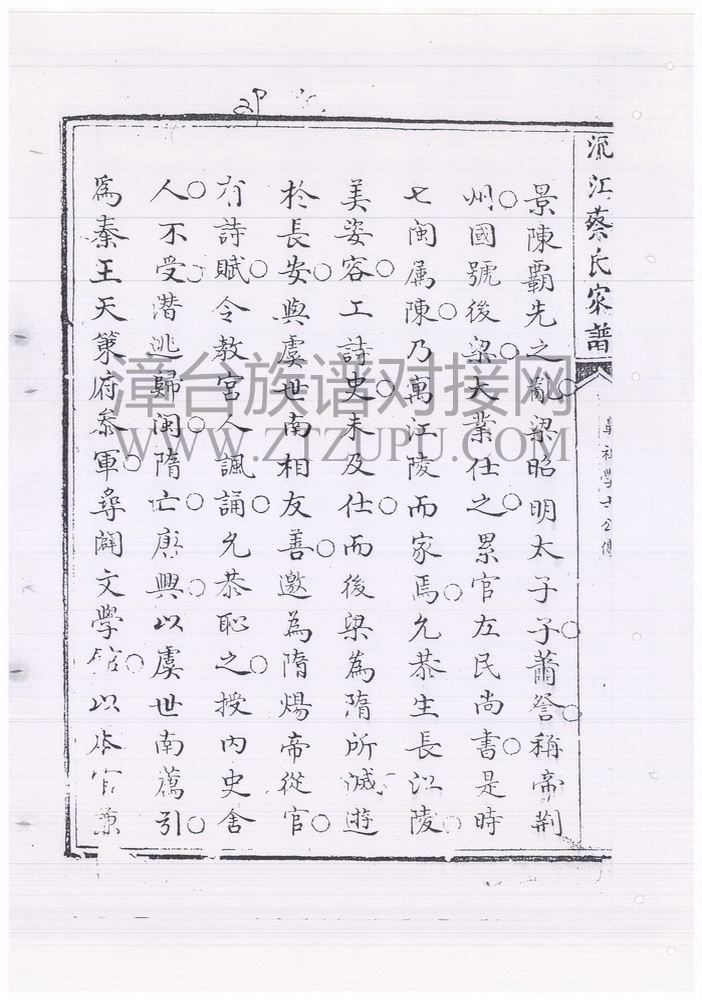 沠江蔡氏家譜
學士公傳
景陳霸先之亂梁昭明太子子蕭詧稱帝荆
州國號後梁大業仕之累官左民尚書是時
七閩属陳乃寓江陵而家焉允恭生長江陵
美姿容工詩史未及仕而後梁為隋所滅遊
於長安與虞世南相友善邀為隋煬帝從官
有詩賦令教宮人諷誦允恭恥之授內史舍
人不受潛逃歸閩隋亡唐興以虞世南薦引
為秦王天策府叅軍尋闢文學館以本官兼
漳台族谱对接网
WWW.ZTZUPU.COM